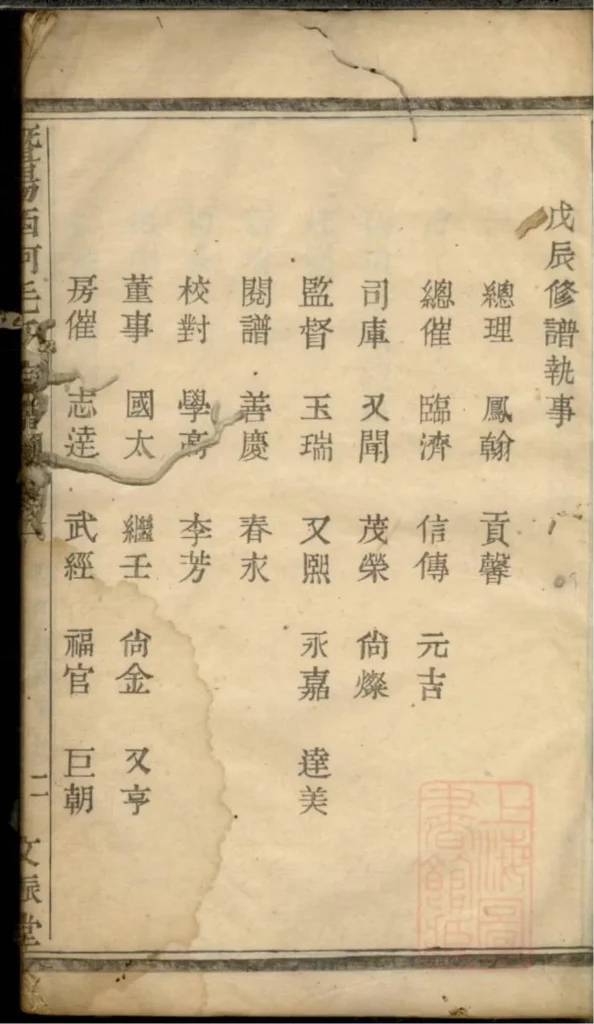 戊辰修譜執事
總理 鳳翰 貢馨
總催 臨濟 信傳 元吉
司庫 又聞 茂榮 尙燦
監督 玉瑞 又熙 永嘉 達美
閱譜 善慶 春永
校對 學高 李芳
董事 國太 繼壬 尙金 又亨
房催 志達 武經 福官 巨朝
暨陽西河毛氏宗譜 二 文振堂
上海圖書館藏